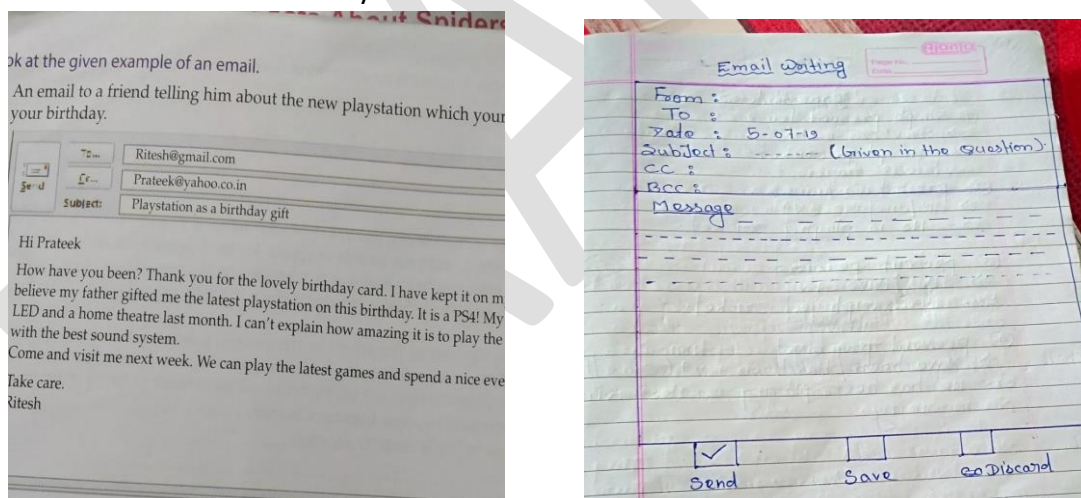 About Spiders
ok at the given example of an email.
An email to a friend telling him about the new playstation which your
your birthday.
To...
Ritesh@gmail.com
Send
Cc...
Prateek@yahoo.co.in
Subject:
Playstation as a birthday gift
Hi Prateek
How have you been? Thank you for the lovely birthday card. I have kept it on m
believe my father gifted me the latest playstation on this birthday. It is a PS4! My
LED and a home theatre last month. I can't explain how amazing it is to play the
with the best sound system.
Come and visit me next week. We can play the latest games and spend a nice eve
Take care.
Ritesh
Email Writing
From :
To :
Date : 5-07-19
Subject : ------ (Given in the Question).
CC :
BCC :
Message
Send
Save
Discard